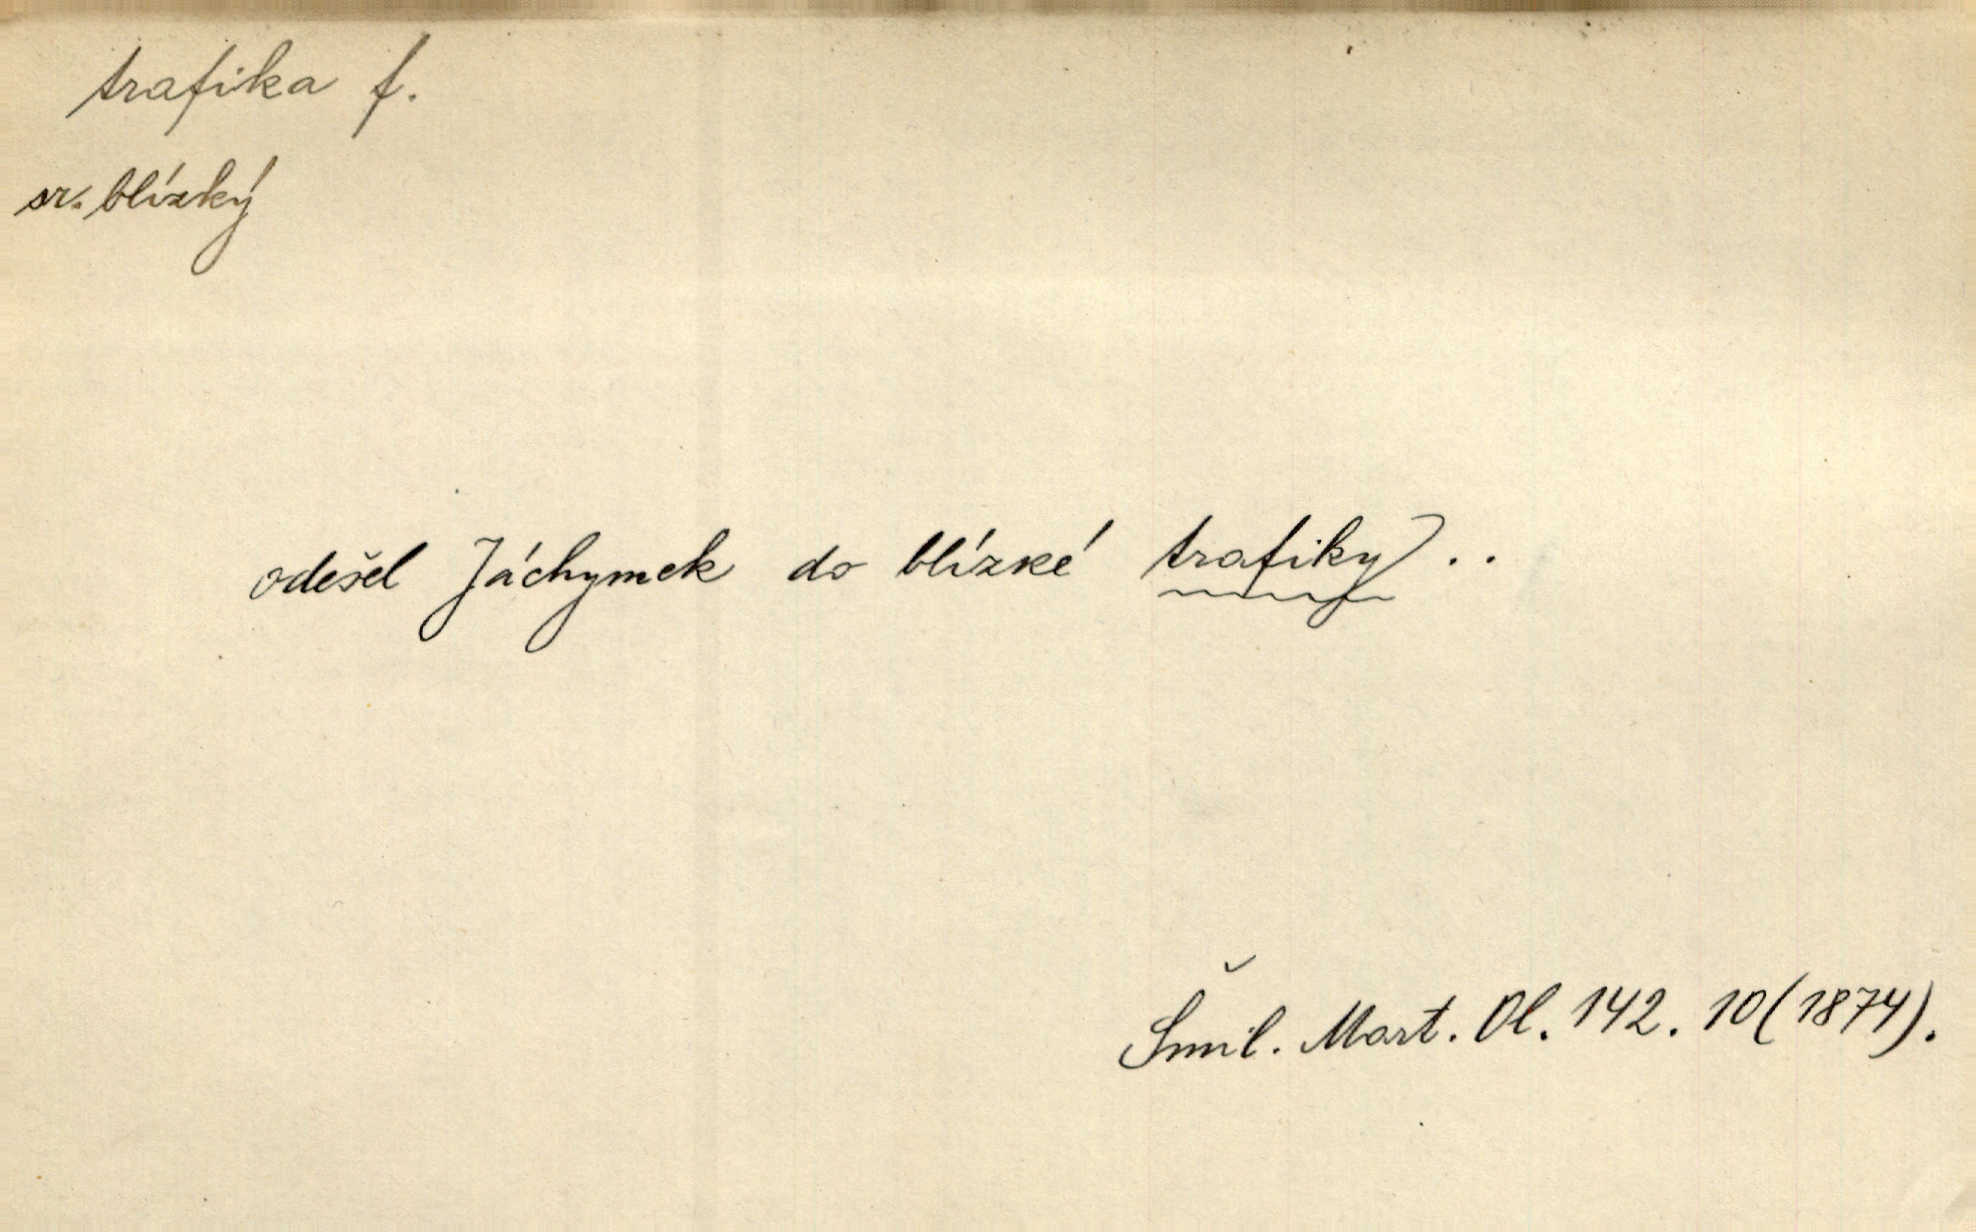 trafika f.
sr. blízký
odešel Jáchymek do blízké trafiky ..
Šmil. Mart. Ol. 142. 10 (1874).